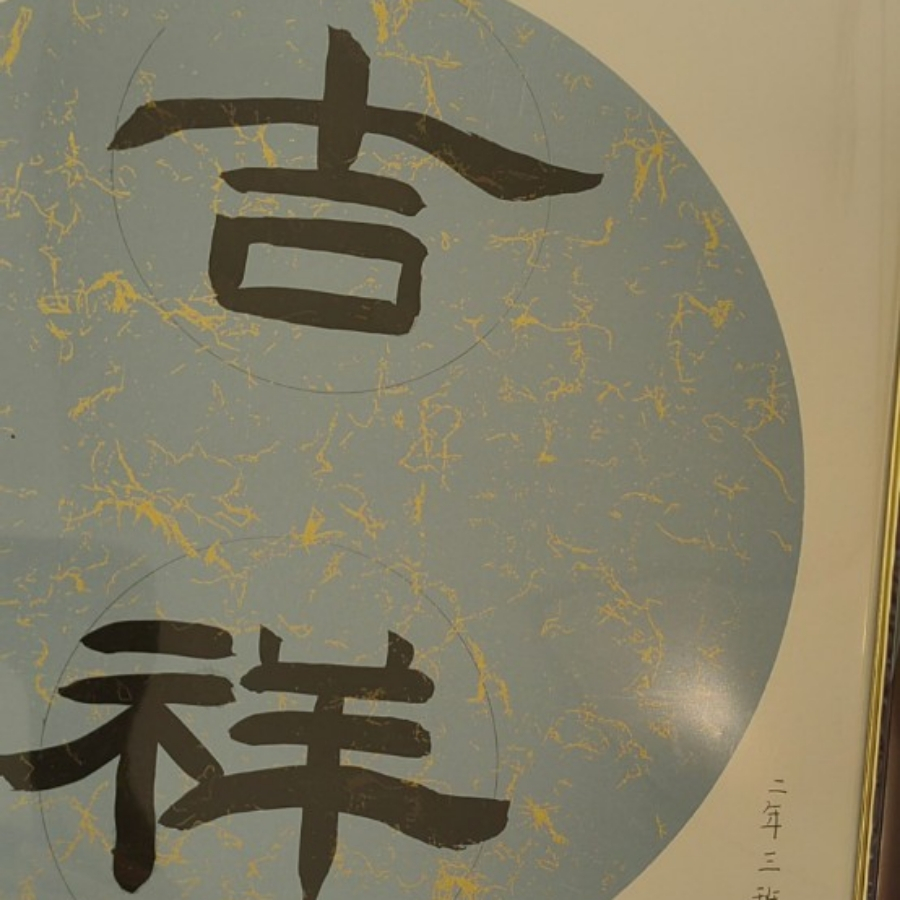 吉祥
二年三班